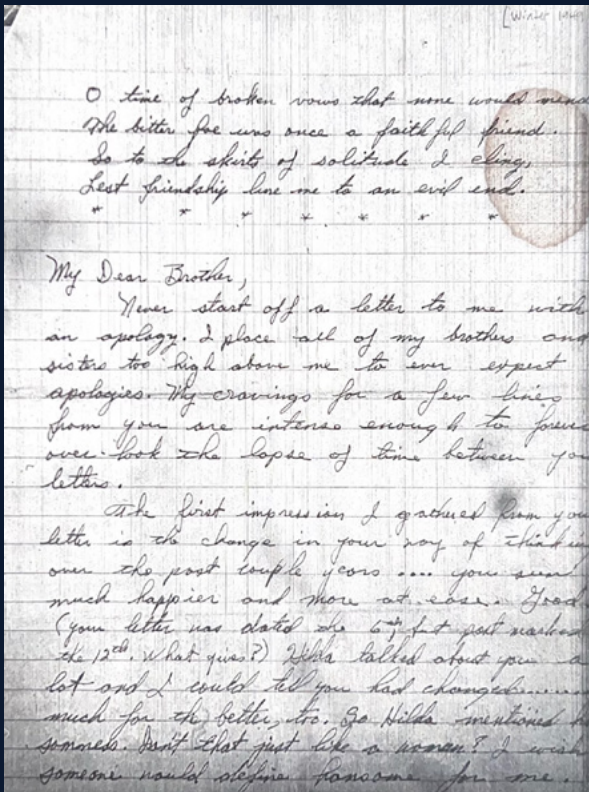 [Winter
O time of broken vows that none would mend
The bitter foe was once a faithful friend.
So to the skirts of solitude I cling,
Lest friendship lure me to an evil end.
* * * * * * *
My Dear Brother,
Never start off a letter to me with
an apology. I place all of my brothers and
sisters too high above me to ever expect
apologies. My cravings for a few lines
from you are intense enough to forever
over-look the lapse of time between you
letters.
The first impression I gathered from you
letter is the change in your way of thinkin
over the past couple years .... you seem
much happier and more at ease. Good
(your letter was dated the 6th, but post marked
the 12th. What gives?) Hilda talked about you a
lot and I could tell you had changed.......
much for the better, too. So Hilda mentioned h
somness. Don't that just like a woman? I wish
someone would define hansome for me.